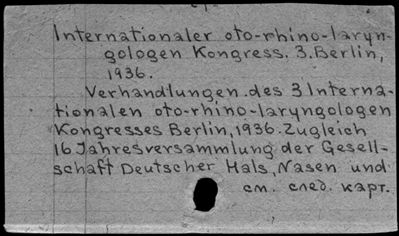 Internationaler oto-rhino-laryn-
gologen Kongress. 3. Berlin,
1936.
Verhandlungen des 3 Interna-
tionalen oto-rhino-laryngologen
Kongresses Berlin, 1936. Zugleich
16 Jahresversammlung der Gesell-
schaft Deutscher Hals, Nasen und
см. след. карт.